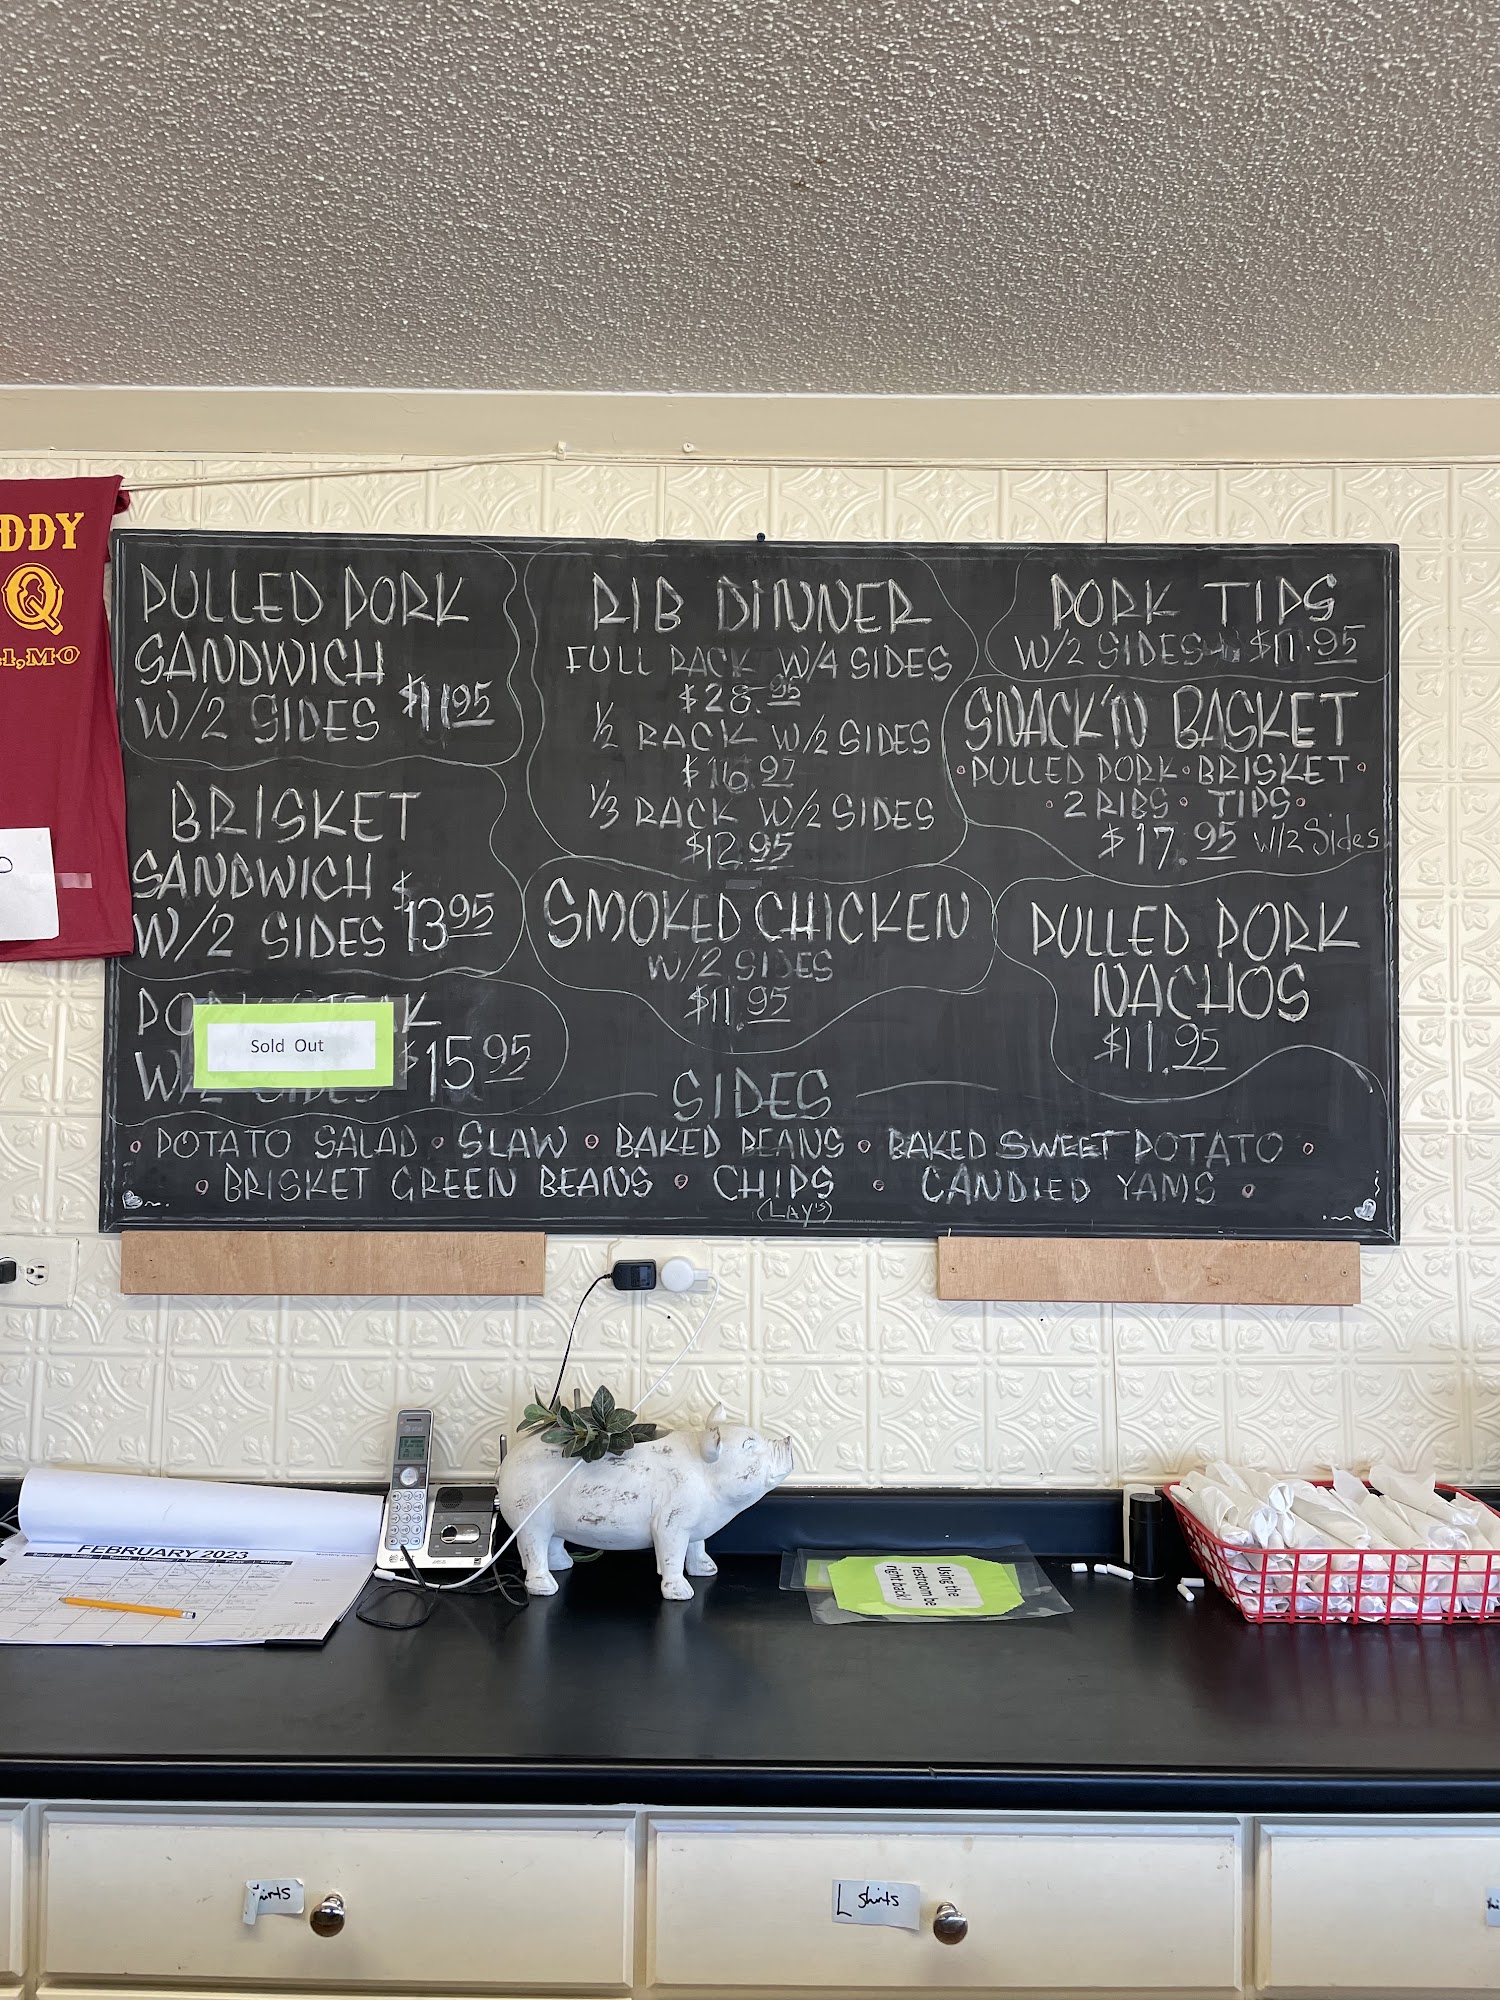 DDY
Q
MO
PULLED PORK
SANDWICH
W/2 SIDES $11.95
BRISKET
SANDWICH
W/2 SIDES $13.95
Sold Out
$15.95
RIB DINNER
FULL RACK W/4 SIDES
$28.95
1/2 RACK W/2 SIDES
$16.97
1/3 RACK W/2 SIDES
$12.95
SMOKED CHICKEN
W/2 SIDES
$11.95
PORK TIPS
W/2 SIDES $11.95
SNACK'N BASKET
•PULLED PORK•BRISKET•
•2 RIBS• TIPS•
$17.95 W/2 Sides
PULLED PORK
NACHOS
$11.95
SIDES
• POTATO SALAD • SLAW • BAKED BEANS • BAKED SWEET POTATO •
• BRISKET GREEN BEANS • CHIPS • CANDIED YAMS •
(LAY'S)
FEBRUARY 2023
Using the
restroom be
right back!
L shirts